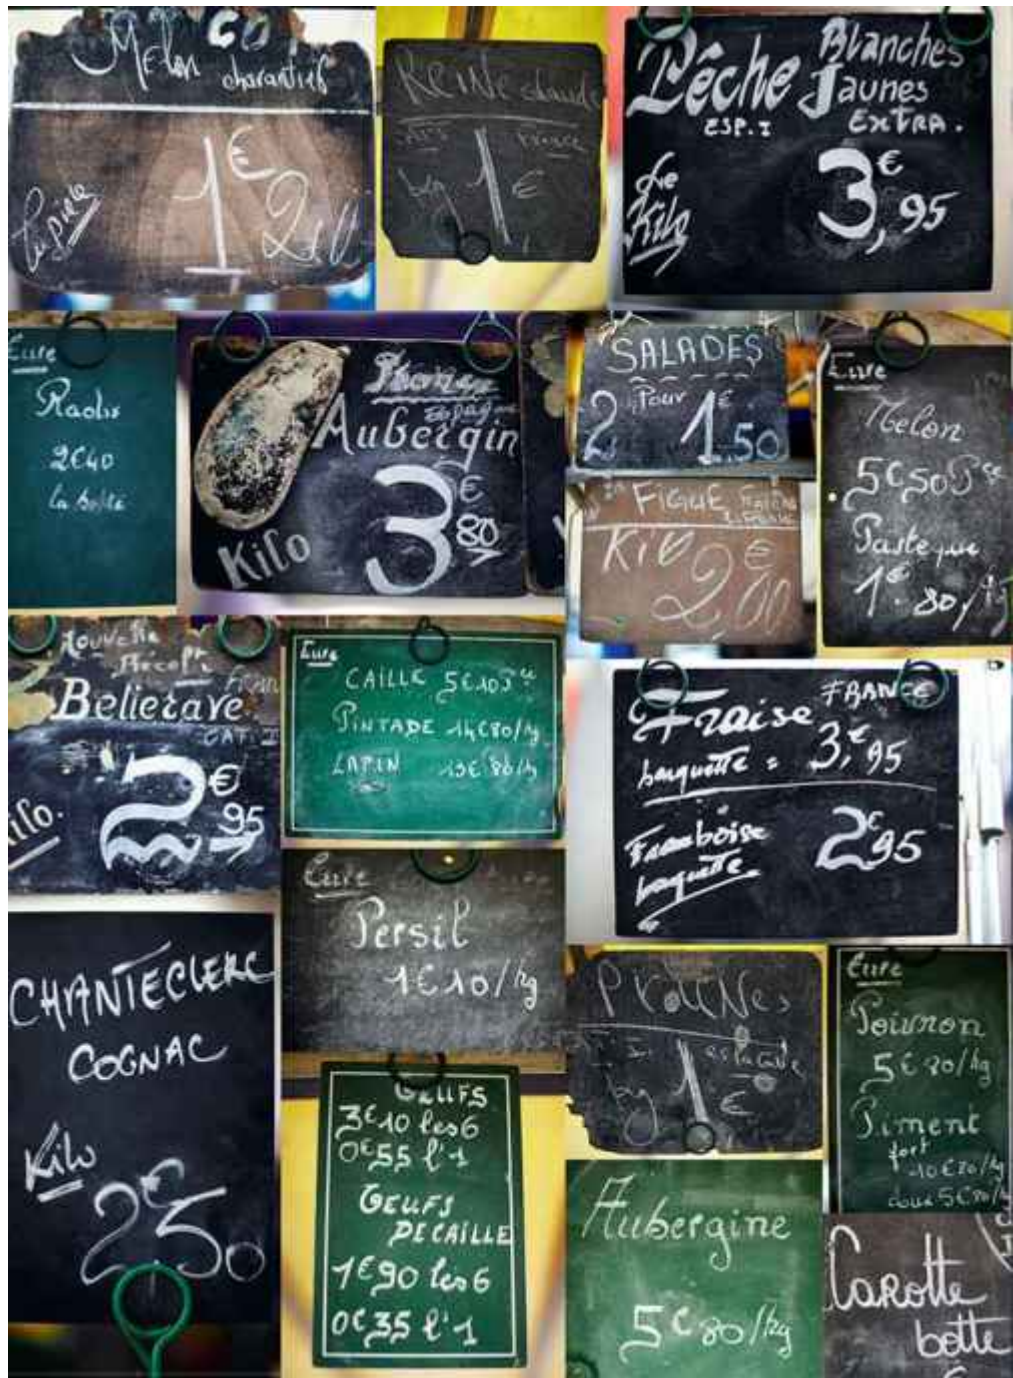 Melon
charantais
1€
2€00
REINE claude
France
kg 1€
Pêche Blanches
Jaunes
ESP. I EXTRA.
Le
Kilo
3€,95
Eure
Radis
2€40
la botte
Aubergin
Kilo
3€80
SALADES
2 Pour 1€.50
FIGUE
Kilo
2€,00
Eure
Melon
5€50 Pce
Pasteque
1€.80/kg
Nouvelle
Récolt
Betterave
CAT. I
Kilo.
2€95
Eure
CAILLE 5€10 Pce
PINTADE 14€80/kg
LAPIN 13€80/kg
Fraise FRANCE
barquette = 3€,95
Framboise
barquette
2€95
Eure
Persil
1€10/kg
CHANTECLERC
COGNAC
Kilo
2€50
OEUFS
3€10 les 6
0€55 l'1
OEUFS
DE CAILLE
1€90 les 6
0€35 l'1
PRUNES
kg 1€
Eure
Poivron
5€80/kg
Piment
fort
10€80/kg
doux 5€80/kg
Aubergine
5€80/kg
Carotte
botte